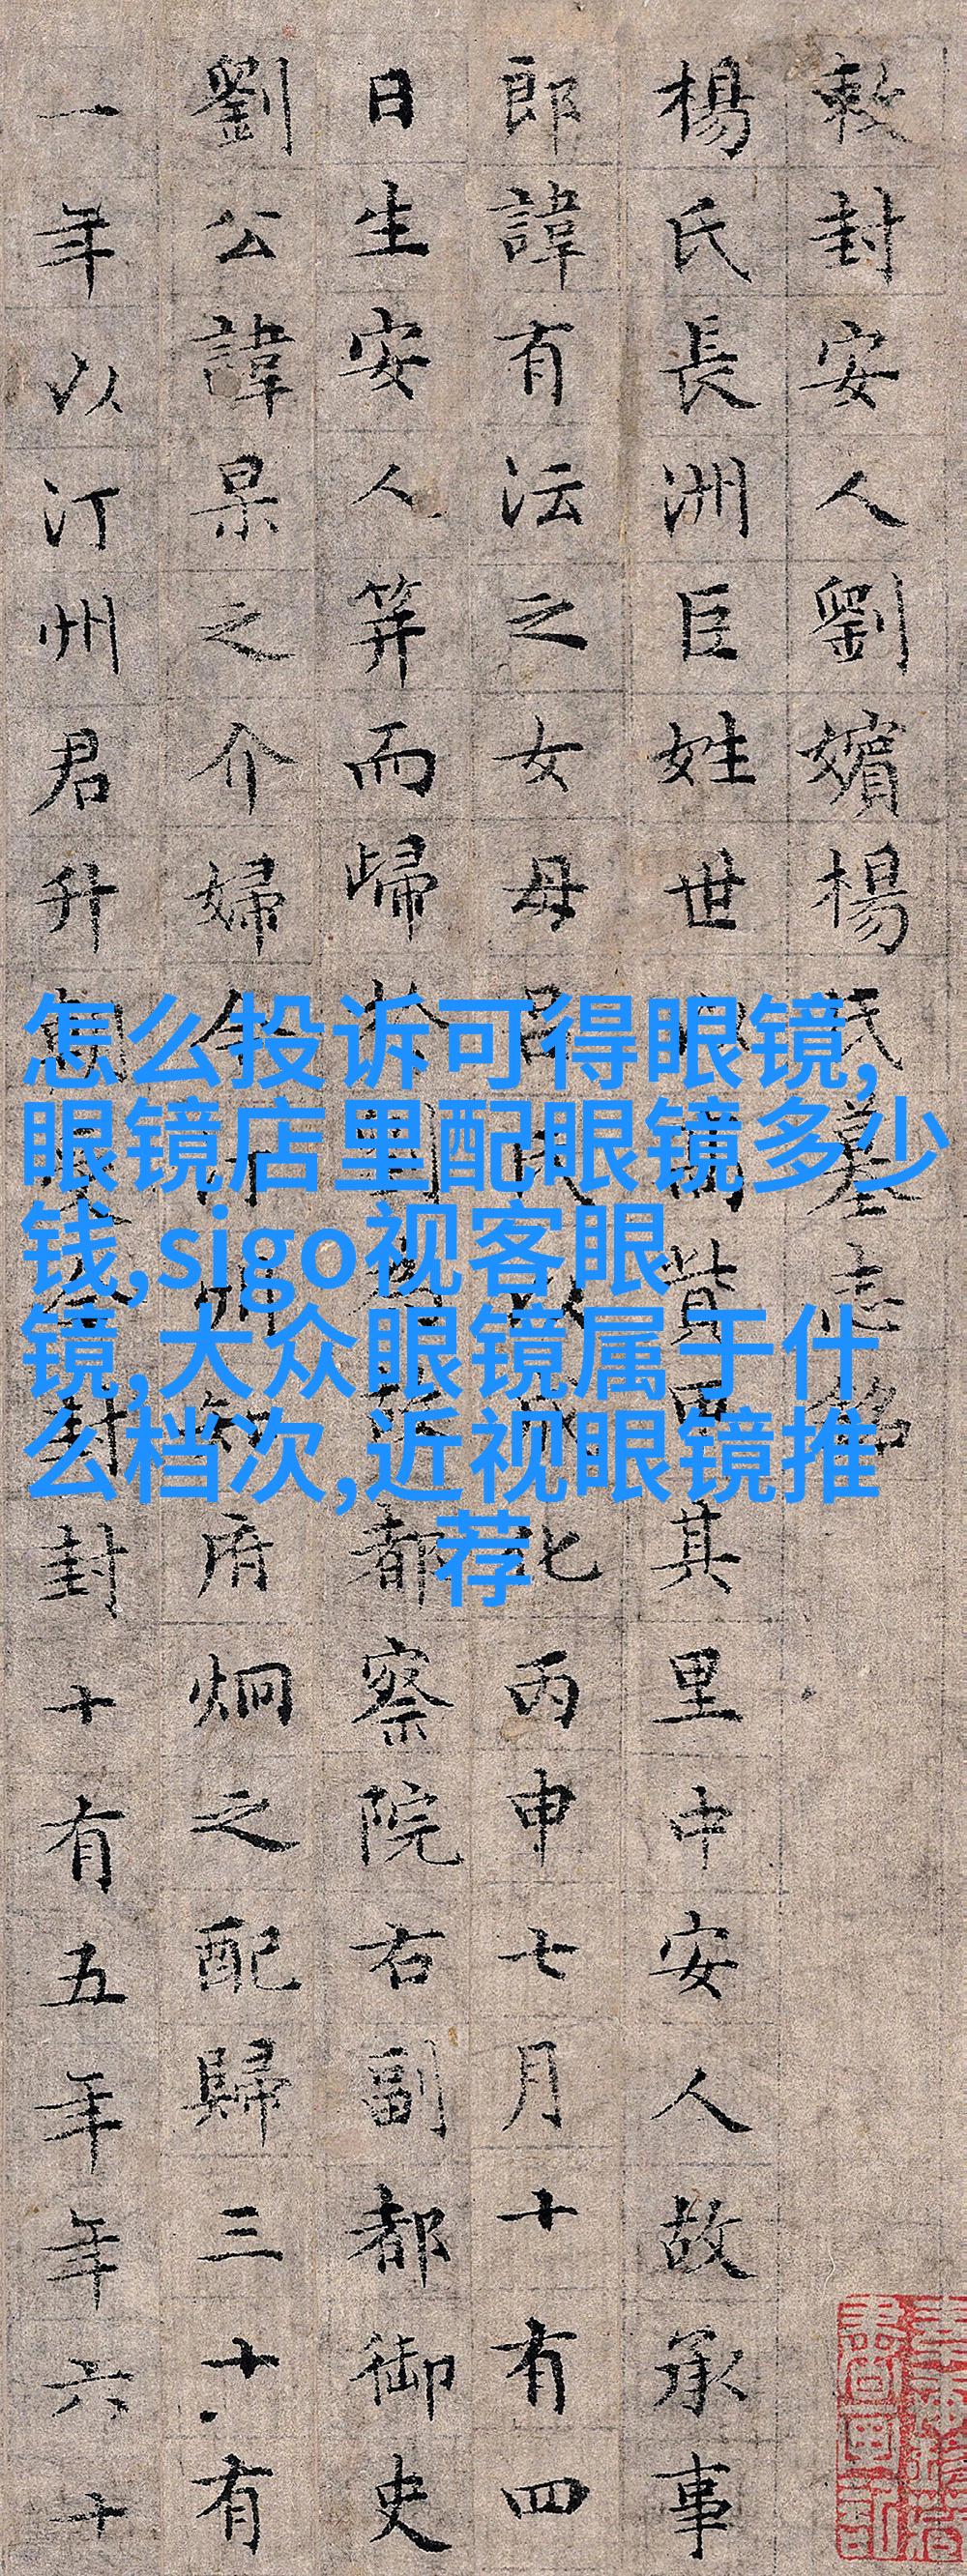 敕封安人劉嬪楊氏墓志銘
楊氏長洲巨姓世以貲其里中安人故承事
郎諱有沄之女母呂氏以成化丙申七月十有四
日生安人笄而歸於劉為故都察院右副都御史
劉公諱杲之介婦今汀州知府炯之配歸三十有
一年以汀州君升朝封封十有五年年六十
怎么投诉可得眼镜,
眼镜店里配眼镜多少
钱,sigo视客眼
镜,大众眼镜属于什
么档次,近视眼镜推
荐